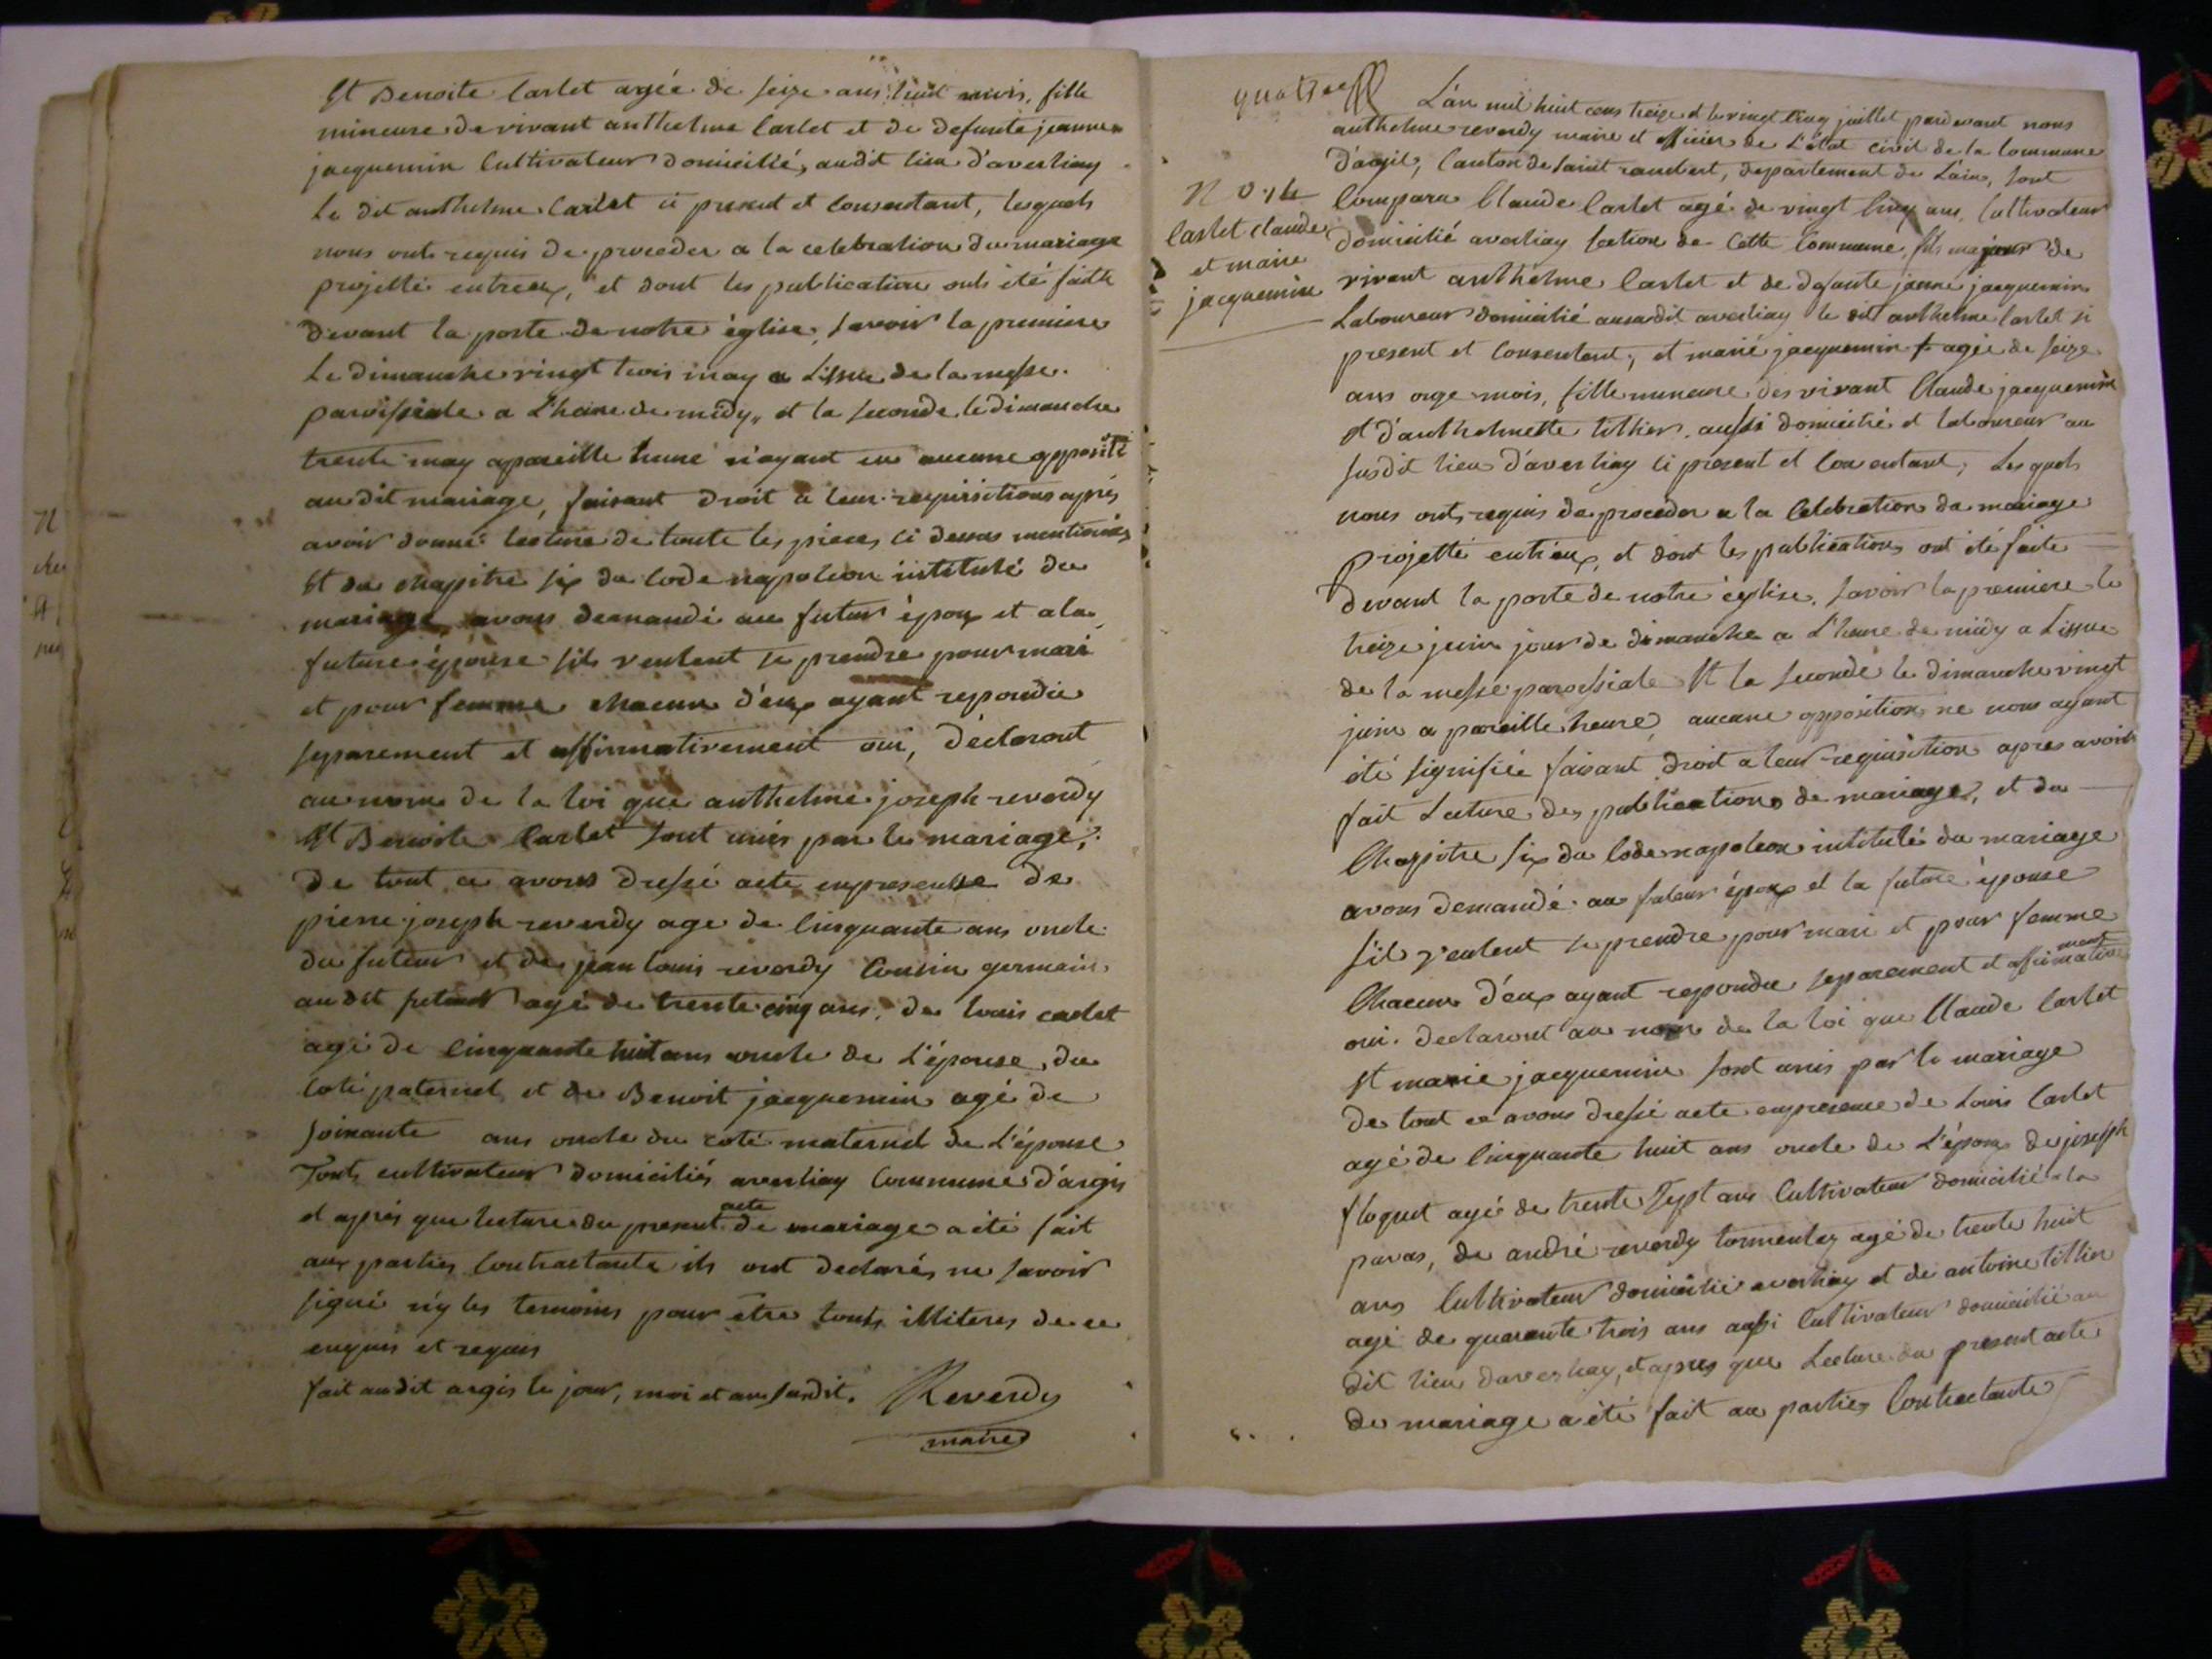 Et Benoite Carlet agée de seize ans huit mois, fille
mineure de vivant anthelme Carlet et de defunte jeanne
jacquemin Cultivateur domicilié, audit lieu d'averliay
Le dit anthelme Carlet ci present et Consentant, lesquels
nous onts requis de proceder a la celebration du mariage
projetté entreeux, et dont les publication onts été faitte
devant la porte de notre église, savoir la premiere
Le dimanche vingt trois may a L'issue de la messe
paroissiale a L'heure de midy, et la seconde le dimanche
trente may apareille heure n'ayant eu aucune opposit
on
audit mariage, faisant droit a leur requisitions après
avoir donné lecture de toute les pieces ci dessus mentionés
Et du chapitre six du Code napoleon intitulé du
mariage, avons demandé au futur époux et a la
future épouse sils veulent se prendre pour mari
et pour femme chacun d'eux ayant repondu
separement et affirmativement oui, déclaront
au nom de la loi que anthelme joseph reverdy
Et Benoite Carlet sont unis par le mariage,
de tout ce avons dressé acte enpresence de
pierre joseph reverdy age de Cinquante ans oncle
du futeur et de jean louis reverdy Cousin germain
audit futeur agé de trente cinq ans, de louis carlet
agé de Cinquante huit ans oncle de L'épouse, du
Coté paternel et de Benoit jacquemin agé de
soixante ans oncle du coté maternel de L'épouse
Touts cultivateur domiciliés averliay Commune d'argis
et après que lecture du present acte de mariage a été fait
aux parties Contractante ils ont declarés ne savoir
signé n'y les temoins pour être touts illiteres de ce
enquis et requis
fait audit argis le jour, moi et an susdit. Reverdy
maire
quatre
L'an mil huit cens treize et le vingt Cinq juillet pardevant nous
anthelme reverdy maire et officier de L'état civil de la Commune
d'argis, Canton de saint rambert, departement de L'ain, sont
N 0
Carlet claude
et marie
jacquemin
Comparu Claude Carlet agé de vingt Cinq ans, Cultivateur
domicilié averliay section de Cette Commune, fils majeur de
vivant anthelme Carlet et de defunte jeanne jacquemin
Laboureur domicilié aussudit averliay le dit anthelme Carlet si
present et Consentent, et marie jacquemin agée de seize
ans onze mois, fille mineure des vivant Claude jacquemin
et d'anthelmette tithier, aussi domicilié et laboureur au
susdit lieu d'averliay ci present et Consentant, Lesquels
nous onts requis de proceder a la Celebration du mariage
projetté entreux, et dont les publications ont été faite
devant la porte de notre église, savoir la premiere le
treize juin jour de dimanche a L'heure de midy a L'issue
de la messe paroissiale Et la seconde le dimanche vingt
juin a pareille heure, aucune opposition ne nous ayant
été signifiée faisant droit a leur requisition apres avoir
fait Lecture des publications de mariage, et du
Chapitre six du Code napoleon intitulé du mariage
avons demandé au futeur époux et la future épouse
s'ils veulent se prendre pour mari et pour femme
Chacun d'eux ayant repondu separement et affirmative
ment
oui. declaront au nom de la loi que Claude Carlet
Et marie jacquemin sont unis par le mariage
de tout ce avons dressé acte enpresence de Louis Carlet
agé de Cinquante huit ans oncle de L'époux de joseph
floquet agé de trente sept ans Cultivateur domicilié la
, de andré reverdy agé de trente huit
ans Cultivateur domicilié averliay et de antoine tithier
agé de quarante trois ans aussi Cultivateur domicilié au
dit lieu daverliay, et apres que Lecture du present acte
de mariage a été fait au parties Contractante